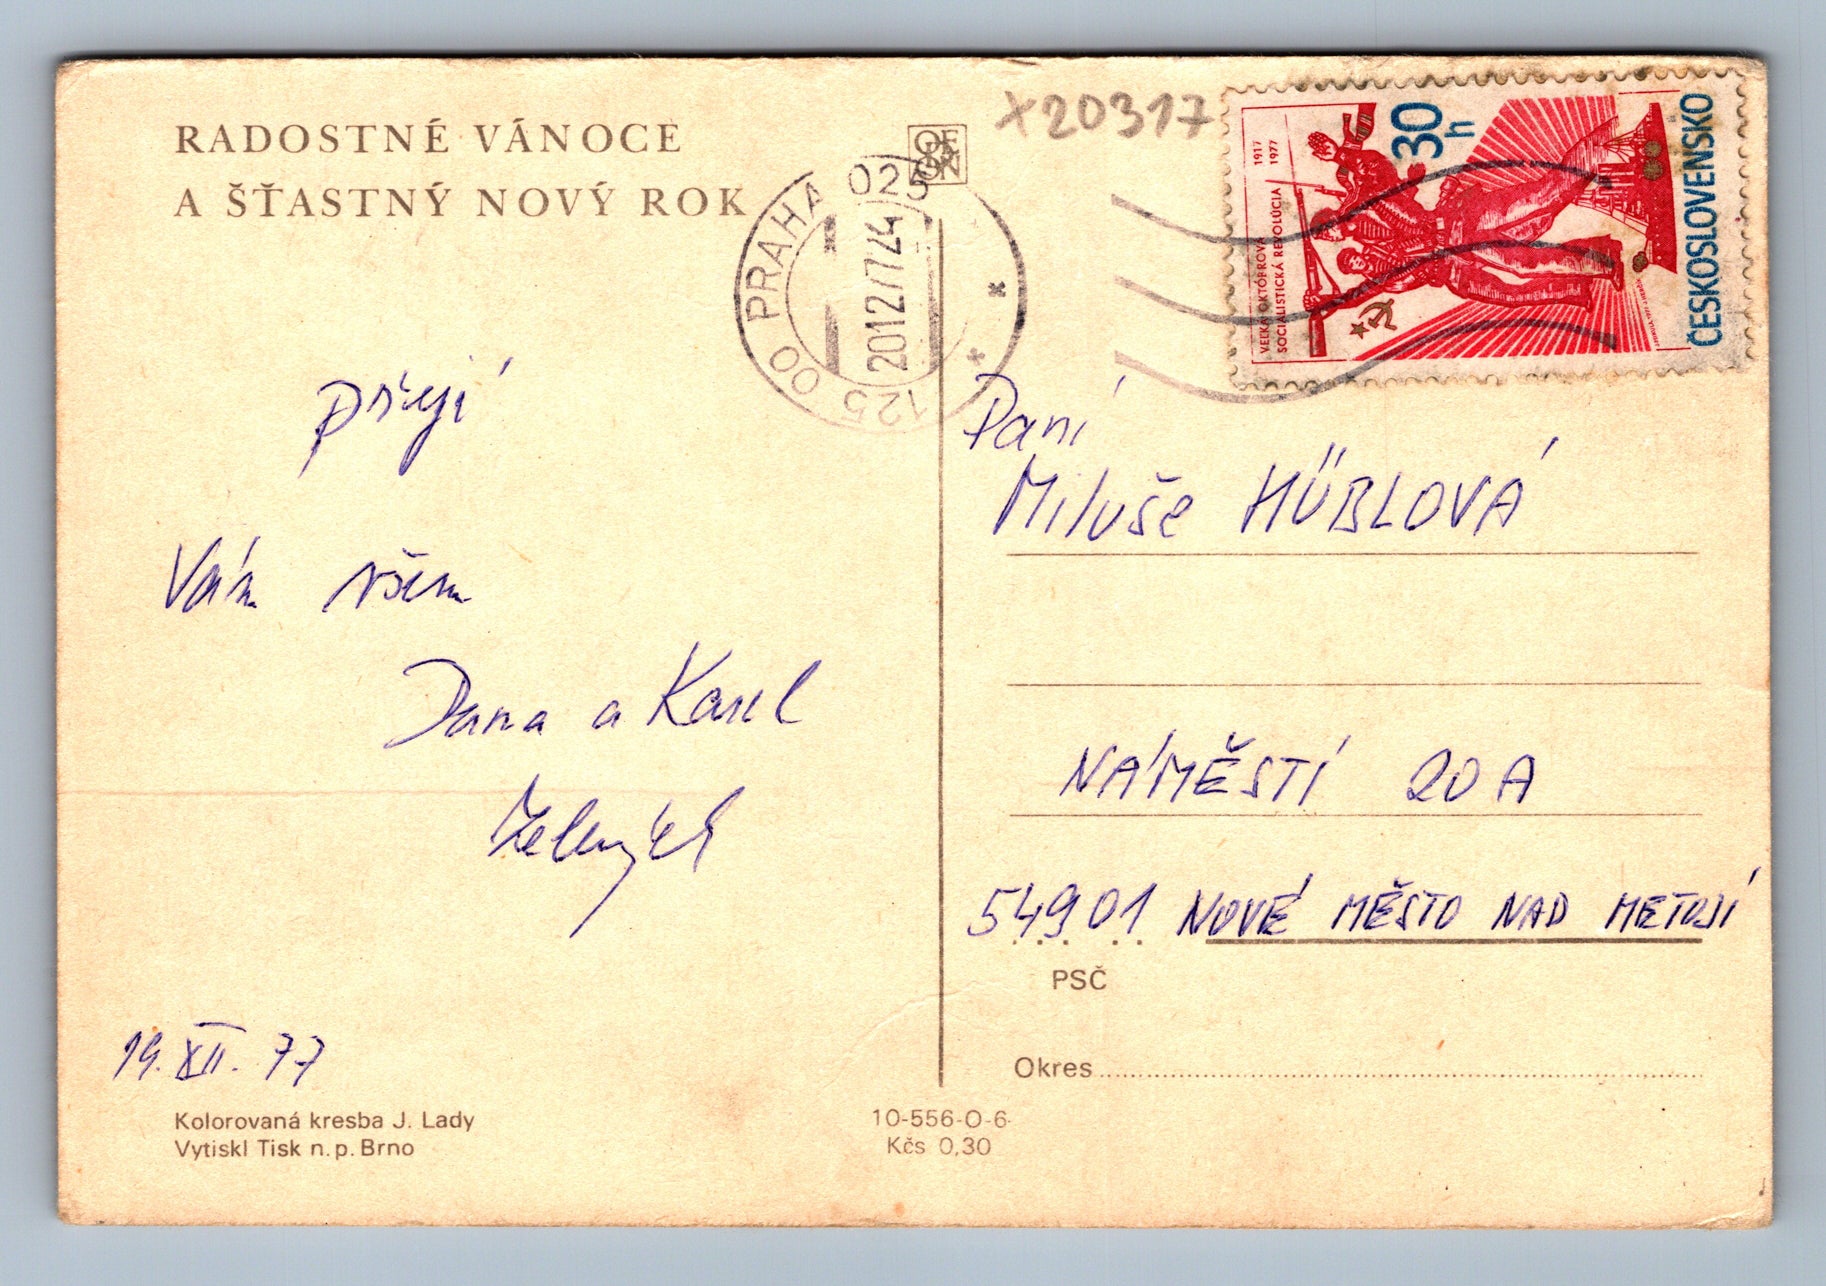 RADOSTNÉ VÁNOCE
A ŠŤASTNÝ NOVÝ ROK
přejí
Vám všem
Dana a Karel
19. XII. 77
Kolorovaná kresba J. Lady
Vytiskl Tisk n.p. Brno
10-556-O-6-
Kčs 0,30
ODEON
X20317
PRAHA 025
125 00
20.12.77 24
1917
1977
VEĽKÁ OKTÓBROVÁ
SOCIALISTICKÁ REVOLÚCIA
30
h
ČESKOSLOVENSKO
Paní
Miluše HÜBLOVÁ
NÁMĚSTÍ 20A
54901 NOVÉ MĚSTO NAD METUJÍ
PSČ
Okres